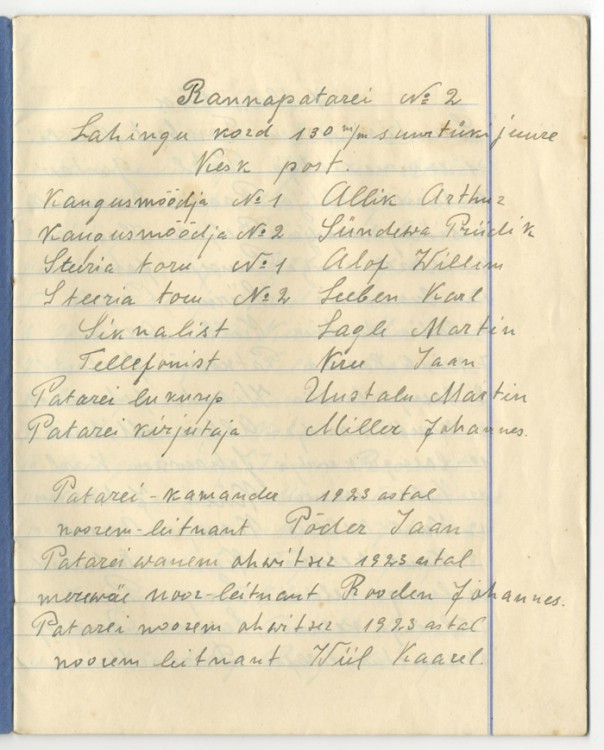 Rannapatarei № 2
Lahingu kord 130 m/m suurtükijuure
Kesk post.
Kaugusmõõdja № 1 Allik Arthur
Kaugusmõõdja № 2 Sündewa Priidik
Steeria toru № 1 Alof Willem
Steeria toru № 2 Seeben Karl
Siknalist Lagle Martin
Tellefonist Jaan
Patarei Uustalu Martin
Patarei kirjutaja Miller Johannes.
Patarei-kamander 1923 astal
noorem-leitnant Põder Jaan
Patarei wanem ohwitser 1923 astal
merewäe noor-leitnant Rooden Johannes.
Patarei noorem ohwitser 1923 astal
noorem leitnant Wiil Kaarel.